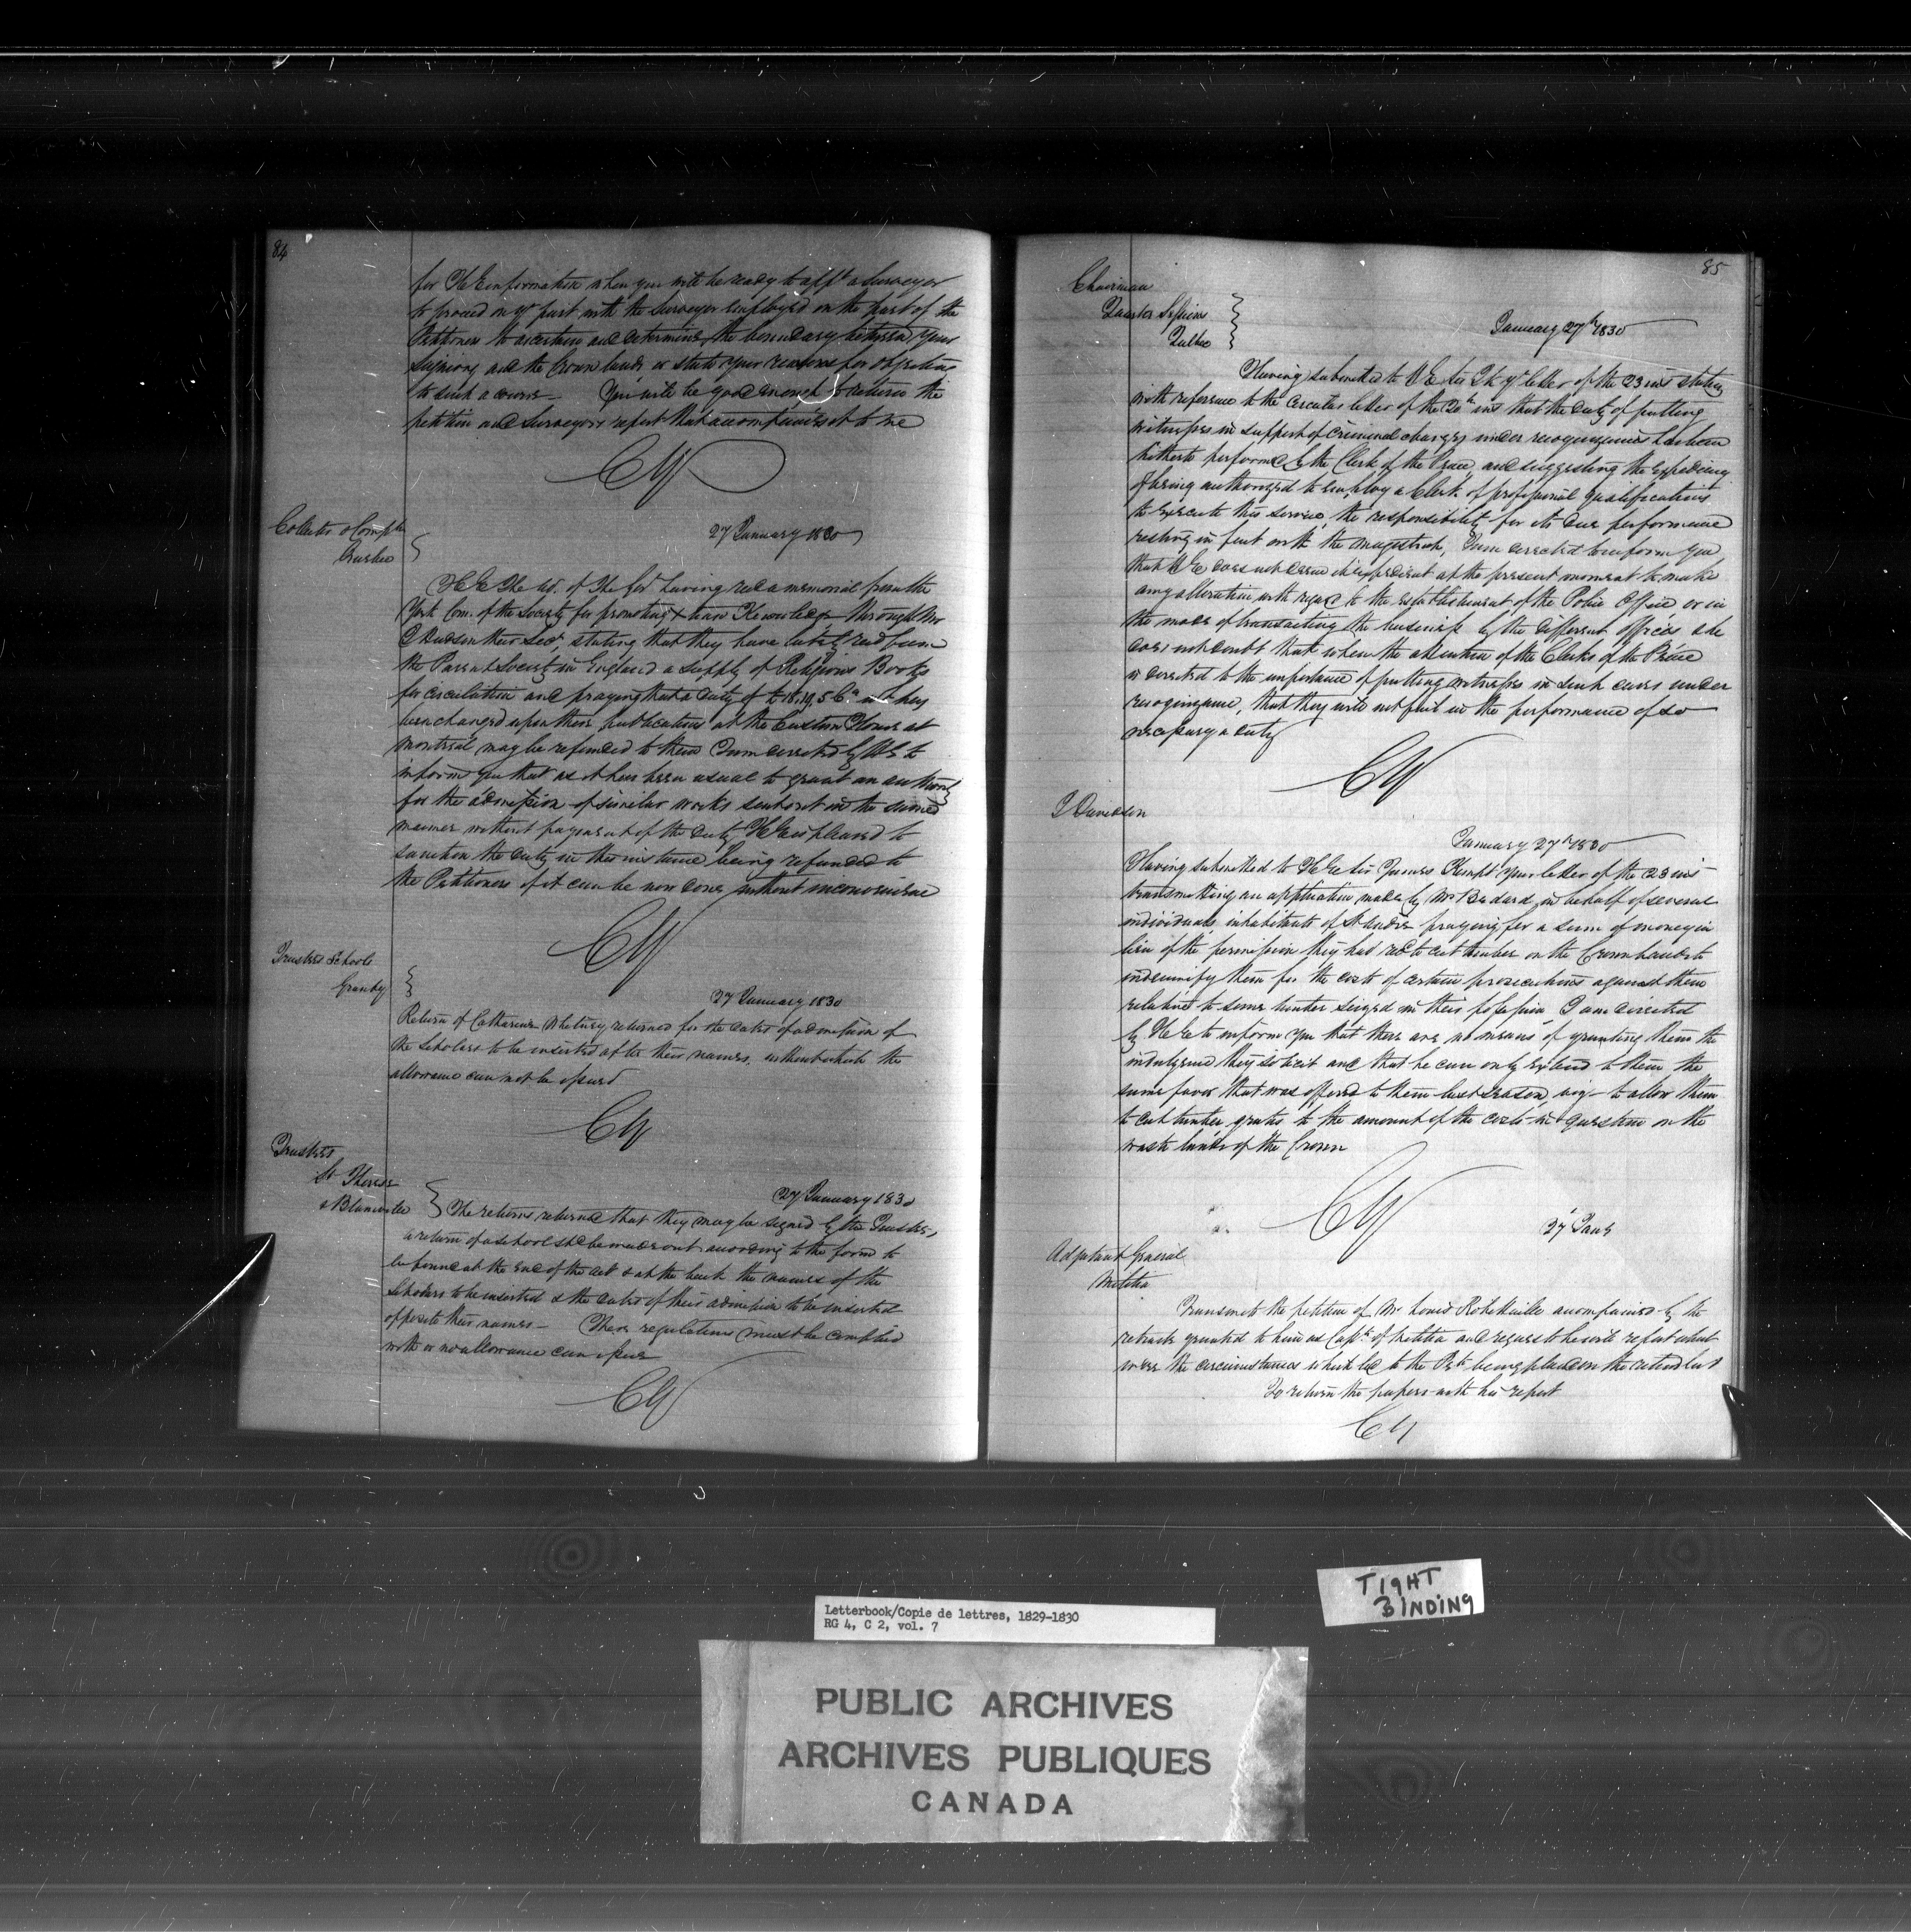 84
for H E information when you will be ready to appt a Surveyor
to proceed on yr part with the Surveyor employed on the part of the
Petitioners to ascertain and determine the boundary between your
Seigniory and the Crown lands or state your reasons for objecting
to such a course — You will be good enough to return the
petition and Surveyors report that accompanies it to me
CY
Collector & Compt
Quebec
27 January 1830
H E The Ad. of The Govt having recd a memorial from the
York Com. of the Society for promoting Xtian Knowledge through Mr
their Secy, stating that they have lately recd from
the Parent Society in England a supply of Religious Books
for circulation and praying that a duty of £18.19.5 which has
been charged upon these publications at the Custom House at
Montreal may be refunded to them I am directed by H E to
inform you that as it has been usual to grant an authority
for the admission of similar works sent out in the same
manner without payment of the duty, H E is pleased to
sanction the duty in this instance being refunded to
the Petitioners if it can be now done without inconvenience
CY
Trustees Schools
Granby
27 January 1830
Return of Catharine Whitney returned for the dates of admission of
the Scholars to be inserted after their names, without which the
allowance can not be issued
CY
Trustees
St Therese
& Blainville
27 January 1830
The returns returned that they may be signed by the Trustees,
a return of a school shd be made out according to the form to
be found at the end of the act & at the back the names of the
Scholars to be inserted & the dates of their admission to be inserted
opposite their names — These regulations must be complied
with or no allowance can issue
CY
85
Chairman
Quarter Sessions
Quebec
January 27th 1830
Having submitted to H E Sir J K yr letter of the 23 inst stating
with reference to the Circular letter of the 20th inst that the duty of putting
witnesses in support of Criminal charges under recognizances has been
hitherto performed by the Clerk of the Peace, and suggesting the expediency
of being authorized to employ a Clerk of professional qualifications
to execute this service, the responsibility for its due performance
resting in fact with the magistrate, I am directed to inform you
that H E does not deem it expedient at the present moment to make
any alteration with regard to the establishment of the Police Office or in
the mode of transacting the business by the different offices & he
does not doubt that when the attention of the Clerks of the Peace
is directed to the importance of putting witnesses in such cases under
recognizance, that they will not fail in the performance of so
necessary a duty
CY
J Davidson
January 27th 1830
Having submitted to H E Sir James Kempt your letter of the 23 inst
transmitting an application made by Mr Badard in behalf of several
individuals inhabitants of St Andre praying for a sum of money in
lieu of the permission they had recd to cut timber on the Crown lands to
indemnify them for the costs of certain prosecutions against them
relative to some timber seized in their possession I am directed
by H E to inform you that there are no means of granting them the
indulgence they solicit and that he can only extend to them the
same favor that was offered to them last season, viz — to allow them
to cut timber gratis to the amount of the costs in question on the
waste lands of the Crown
CY
27 Jany
Adjutant General
Militia
Transmits the petition of Mr Louis Robitaille accompanied by the
retreats granted to him as Capt. of Militia and requests he will report what
were the circumstances which led to the Petr being placed on the retired list
To return the papers with his report
CY
TIGHT
BINDING
Letterbook/Copie de lettres, 1829-1830
RG 4, C 2, vol. 7
PUBLIC ARCHIVES
ARCHIVES PUBLIQUES
CANADA